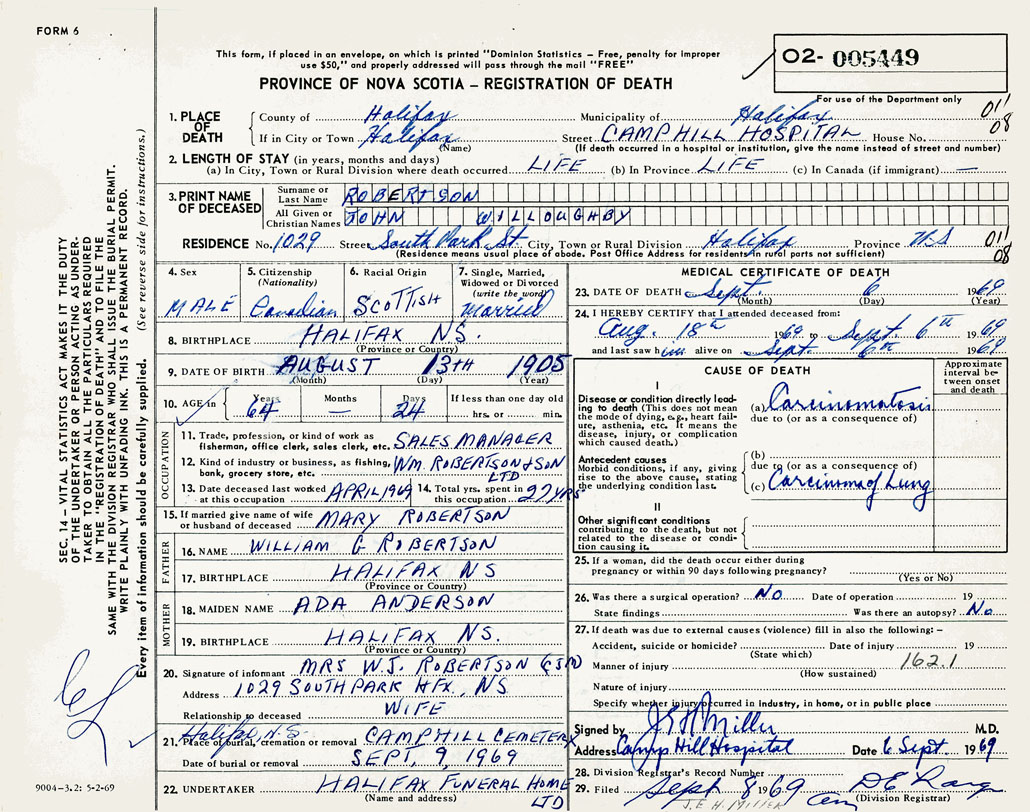 FORM 6
This form, if placed in an envelope, on which is printed "Dominion Statistics – Free, penalty for improper
use $50," and properly addressed will pass through the mail "FREE"
PROVINCE OF NOVA SCOTIA – REGISTRATION OF DEATH
02- 005449
For use of the Department only
1. PLACE OF DEATH
County of Halifax Municipality of Halifax 011
If in City or Town Halifax Street CAMP HILL HOSPITAL House No. 08
(Name) (If death occurred in a hospital or institution, give the name instead of street and number)
2. LENGTH OF STAY (in years, months and days)
(a) In City, Town or Rural Division where death occurred LIFE (b) In Province LIFE (c) In Canada (if immigrant) —
3. PRINT NAME OF DECEASED
Surname or Last Name ROBERTSON
All Given or Christian Names JOHN WILLOUGHBY
RESIDENCE No. 1029 Street South Park St. City, Town or Rural Division Halifax Province N.S 011
(Residence means usual place of abode. Post Office Address for residents in rural parts not sufficient) 08
4. Sex MALE
5. Citizenship (Nationality) Canadian
6. Racial Origin SCOTTISH
7. Single, Married, Widowed or Divorced (write the word) Married
8. BIRTHPLACE HALIFAX N.S.
(Province or Country)
9. DATE OF BIRTH AUGUST 13TH 1905
(Month) (Day) (Year)
10. AGE in Years 64 Months — Days 24 If less than one day old hrs. or min.
OCCUPATION
11. Trade, profession, or kind of work as fisherman, office clerk, sales clerk, etc. SALES MANAGER
12. Kind of industry or business, as fishing, bank, grocery store, etc. WM. ROBERTSON & SON LTD
13. Date deceased last worked at this occupation APRIL 1969 14. Total yrs. spent in this occupation 27 YRS
15. If married give name of wife or husband of deceased MARY ROBERTSON
FATHER
16. NAME WILLIAM G ROBERTSON
17. BIRTHPLACE HALIFAX NS
(Province or Country)
MOTHER
18. MAIDEN NAME ADA ANDERSON
19. BIRTHPLACE HALIFAX NS.
(Province or Country)
20. Signature of informant MRS W.J. ROBERTSON
Address 1029 SOUTH PARK HFX, NS
Relationship to deceased WIFE
Halifax, N.S.
21. Place of burial, cremation or removal CAMP HILL CEMETERY
Date of burial or removal SEPT, 9, 1969
22. UNDERTAKER HALIFAX FUNERAL HOME LTD
(Name and address)
MEDICAL CERTIFICATE OF DEATH
23. DATE OF DEATH Sept. 6 1969
(Month) (Day) (Year)
24. I HEREBY CERTIFY that I attended deceased from:
Aug. 18th 1969 to Sept 6th 1969
and last saw him alive on Sept. 6th 1969
CAUSE OF DEATH
Approximate interval between onset and death
I
Disease or condition directly leading to death (This does not mean the mode of dying, e.g., heart failure, asthenia, etc. It means the disease, injury, or complication which caused death.)
(a) Carcinomatosis
due to (or as a consequence of)
Antecedent causes
Morbid conditions, if any, giving rise to the above cause, stating the underlying condition last.
(b)
due to (or as a consequence of)
(c) Carcinoma of Lung
II
Other significant conditions
contributing to the death, but not related to the disease or condition causing it.
25. If a woman, did the death occur either during
pregnancy or within 90 days following pregnancy?
(Yes or No)
26. Was there a surgical operation? No Date of operation 19
State findings Was there an autopsy? No
27. If death was due to external causes (violence) fill in also the following: –
Accident, suicide or homicide? Date of injury 19
(State which)
162.1
Manner of injury
(How sustained)
Nature of injury
Specify whether injury occurred in industry, in home, or in public place
Signed by J E H Miller M.D.
Address Camp Hill Hospital Date 6 Sept. 1969
28. Division Registrar's Record Number
29. Filed Sept 8 1969
J.E.H. MILLER
(Division Registrar)
SEC. 14 – VITAL STATISTICS ACT MAKES IT THE DUTY
OF THE UNDERTAKER OR PERSON ACTING AS UNDER-
TAKER TO OBTAIN ALL THE PARTICULARS REQUIRED
IN THE "REGISTRATION OF DEATH" AND TO FILE THE
SAME WITH THE DIVISION REGISTRAR WHO SHALL ISSUE THE BURIAL PERMIT.
WRITE PLAINLY WITH UNFADING INK. THIS IS A PERMANENT RECORD.
Every item of information should be carefully supplied. (See reverse side for instructions.)
9004-3.2: 5-2-69